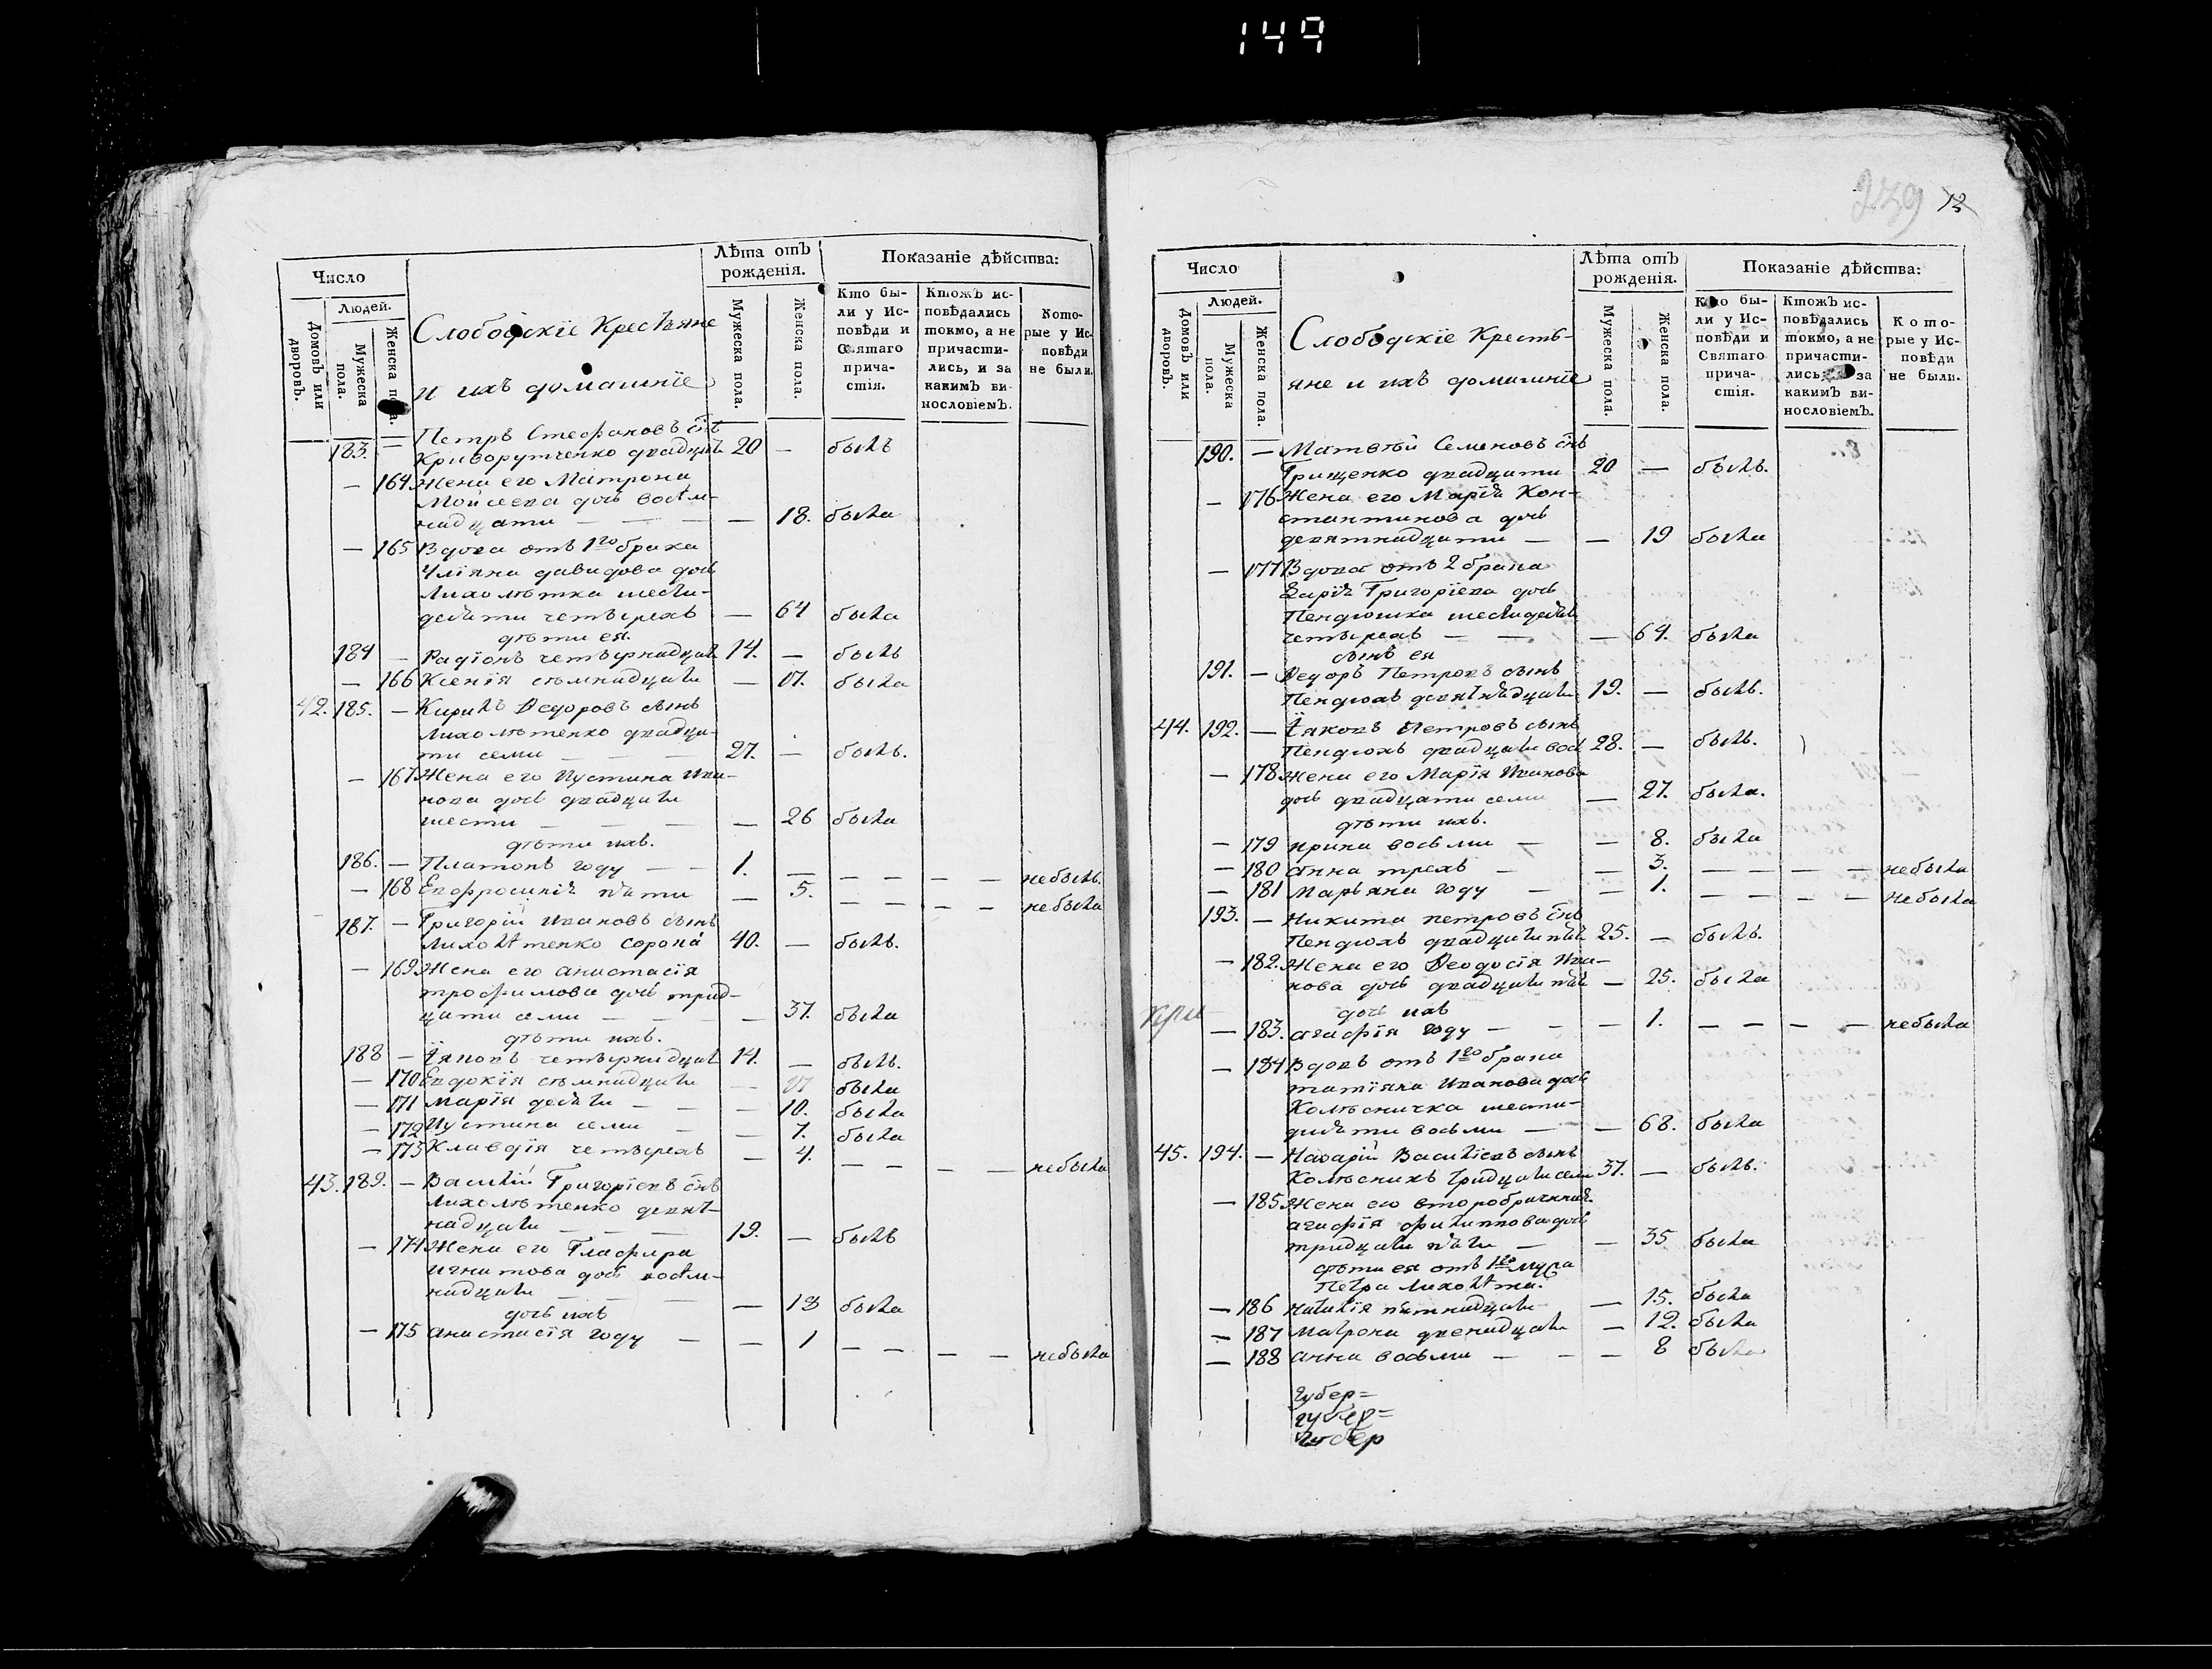 149
Число
Людей.
Домовъ или дворовъ.
Мужеска пола.
Женска пола.
Слободскіе Крестьяне
и ихъ домашніе
Лѣта отъ рожденія.
Мужеска пола.
Женска пола.
Показаніе дѣйства:
Кто были у Исповѣди и Святаго причастія.
Ктожъ исповѣдались токмо, а не причастились, и за какимъ винословіемъ.
Которые у Исповѣди не были.
183. — Петръ Стефановъ снъ
Криворутченко двадцати 20 — былъ
— 164 Жена его Матрона
Мойсеева дочь восем-
надцати — — — — 18. была
— 165 Вдова отъ 1го брака
Улїяна давидова дочь
Лихолѣтка шести-
десяти четырехъ — 64 была
дѣти ея.
184 — Радїонъ четырнадцати 14. — былъ
— 166 Ксенїя сѣмнадцати — 17. была
42. 185. — Кирилъ Ѳедоровъ сынъ
Лихолѣтенко двадца-
ти семи — — — 27. — былъ.
— 167 Жена его Иустина Ива-
нова дочь двадцати
шести — — — — 26 была
дѣти ихъ.
186. — Платонъ году — — 1. — — — — — небылъ.
— 168 Евфросинїя пяти — 5. — — — — небыла
187. — Григорїй Ивановъ сынъ
Лихолѣтенко сорока 40. — былъ.
— 169 Жена его анастасїя
трофимова дочь трид-
цати семи — — — — 37. была
дѣти ихъ.
188 — Їяковъ четырнадцати 14. — былъ.
— 170 Евдокїя сѣмнадцати — 17 была
— 171 марїя десяти — — — 10. была
— 172 Иустина семи — — 7. была
— 173 Клавдїя четырехъ — 4. — — — — небыла
43. 189. — Василїй Григорїевъ снъ
Лихолѣтенко девят-
надцати — — — 19. — былъ
— 174 Жена его Гласфира
игнатова дочь восем-
надцати — — — — 18 была
дочь ихъ
— 175 анастасїя году — — 1 — — — — небыла
279 12
Число
Людей.
Домовъ или дворовъ.
Мужеска пола.
Женска пола.
Слободскіе Кресть-
яне и ихъ домашніе
Лѣта отъ рожденія.
Мужеска пола.
Женска пола.
Показаніе дѣйства:
Кто были у Исповѣди и Святаго причастія.
Ктожъ исповѣдались токмо, а не причастились, и за какимъ винословіемъ.
Которые у Исповѣди не были.
190. — Матвѣй Семеновъ снъ
Грищенко двадцати 20 — былъ.
— 176 Жена его Марїя Кон-
стантинова дочь
девятнадцати — — 19 была
— 177 Вдова отъ 2 брака
Григорїева дочь
Пендюшка шестидесяти
четырехъ — — — 64. была
сынъ ея
191. — Ѳедоръ Петровъ сынъ
Пендюхъ девятнадцати 19. — былъ.
44. 192. — Їяковъ Петровъ сынъ
Пендюхъ двадцати вос 28. — былъ.
— 178 Жена его Марїя Иванова
дочь двадцати семи — 27. была.
дѣти ихъ.
— 179 ирина восьми — — 8. была
— 180 анна трехъ — — 3. — — — — небыла
— 181 Марьяна году — — 1. — — — — Небыла
193. — Никита петровъ снъ
Пендюхъ двадцати пяти 25. — былъ.
— 182. Жена его Ѳеодосїя Ива-
нова дочь двадцати пяти — 25. была
дочь ихъ
— 183. агафїя году — — — 1. — — — — небыла
— 184 Вдова отъ 1го брака
татїяна Иванова дочь
Колѣсничка шести-
десяти восьми — — 68. была
45. 194. — Назарїй Василїевъ сынъ
Колѣсникъ тридцати семи 37. — былъ.
— 185 Жена его второбрачная
агафїя филиппова дочь
тридцати пяти — — 35 была
дѣти ея отъ 1го мужа
Петра Лихолѣта.
— 186 Наталїя пятнадцати — 15. была
— 187 Матрона двенадцати — 12. была
— 188 анна восьми — — — 8 была
губер=
губер=
губер